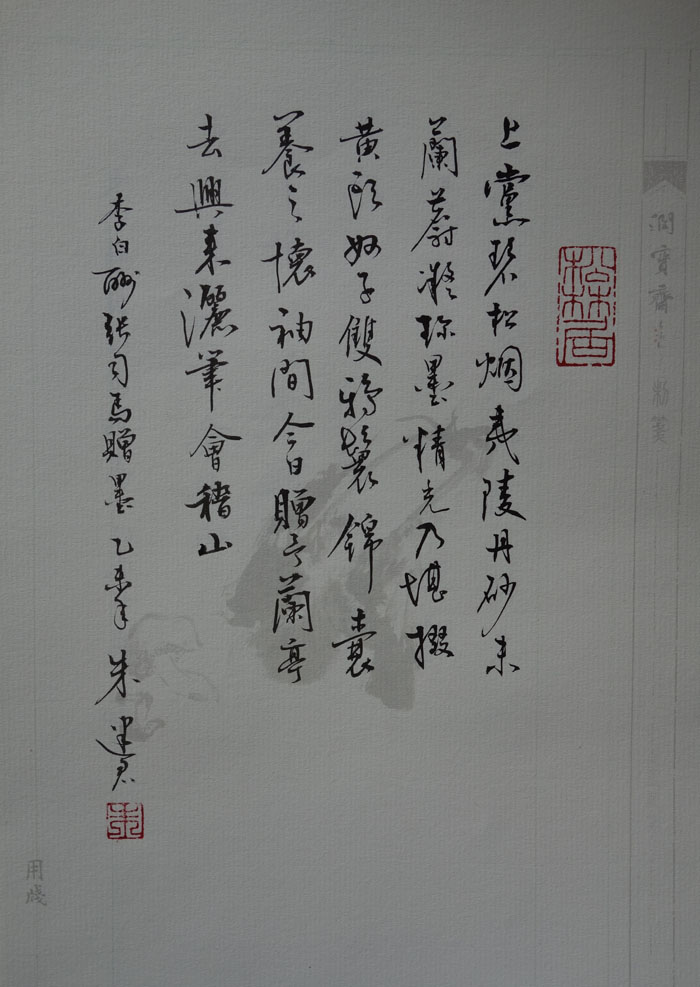 松林居
上黨碧松烟夷陵丹砂末
蘭蔚凝珍墨精光乃堪掇
黃頭奴子雙鴉鬟錦囊
養之懷袖間今日贈予蘭亭
去興來灑筆會稽山
李白酬張司馬贈墨 乙未年 朱
朱
用箋